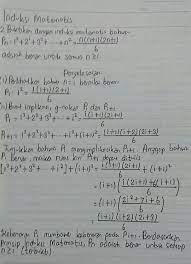 Induksi Matematis
2. Buktikan dengan induksi matematis bahwa
Pn = 1² + 2² + 3² + ... + n² = n(n+1)(2n+1)/6
adalah benar untuk semua n ≥ 1
Penyelesaian
(i) Perlihatkan bahwa n = 1 bernilai benar
P1 = 1² = 1(1+1)(2+1)/6
(ii) Buat implikasi, gunakan Pi dan Pi+1
Pi = 1² + 2² + 3² + ... + i² = i(i+1)(2i+1)/6
Pi+1 = 1² + 2² + 3² + ... + i² + (i+1)² = (i+1)(i+2)(2i+3)/6
Tunjukkan bahwa Pi mengimplikasikan Pi+1. Anggap bahwa
Pi benar, maka ruas kiri Pi+1 dapat ditulis
[1² + 2² + 3² + ... + i²] + (i+1)² = i(i+1)(2i+1)/6 + (i+1)²
= (i+1) i(2i+1) + 6(i+1)/6
= (i+1) [2i² + 7i + 6]/6
= (i+1)(i+2)(2i+3)/6
Kebenaran Pi membawa kebenaran pada Pi+1. Berdasarkan
Prinsip Induksi Matematis, Pn adalah benar untuk setiap
n ≥ 1 (terbukti)